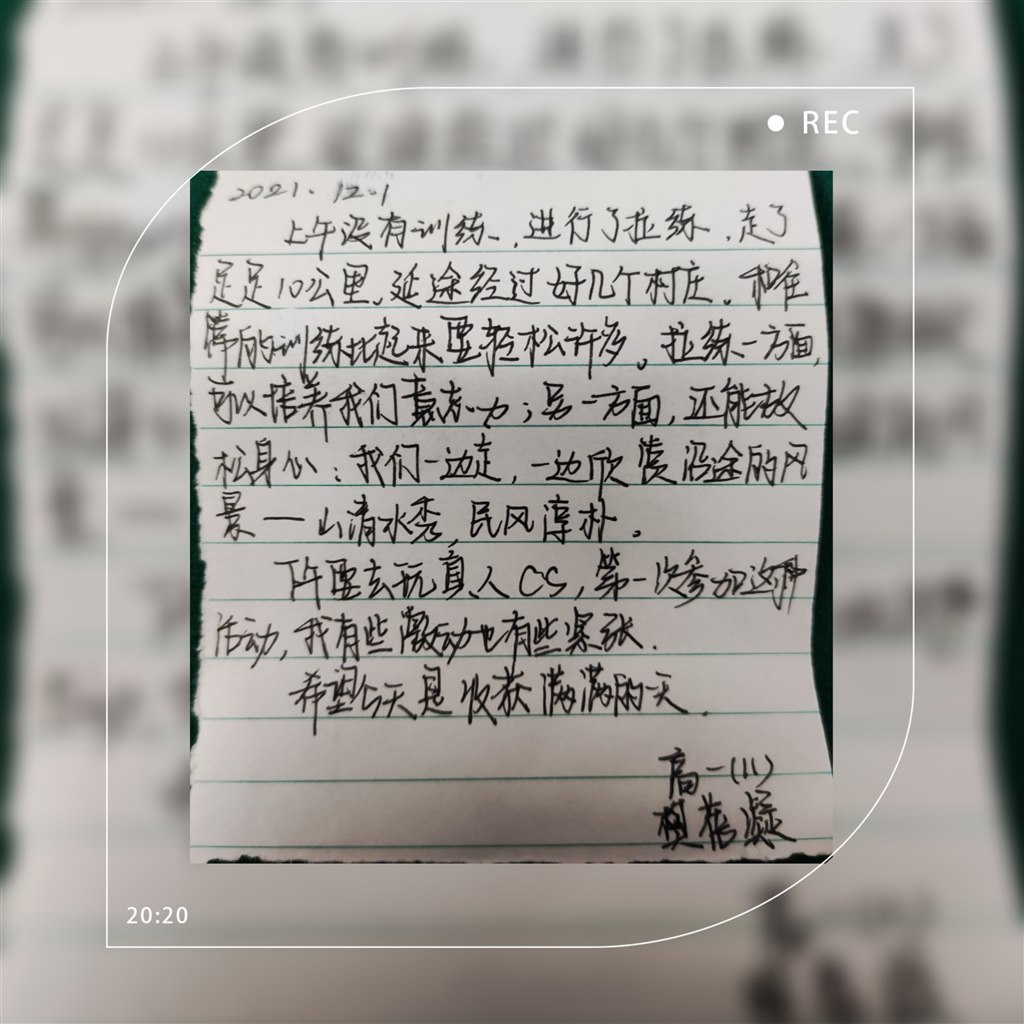 REC
2021.12.1
上午没有训练,进行了拉练,走了
足足10公里,延途经过好几个村庄。和准
的训练比起来要轻松许多。拉练一方面,
可以培养我们意志力;另一方面,还能放
松身心:我们一边走,一边欣赏沿途的风
景一山清水秀,民风淳朴。
下午要去玩真人CS,第一次参加这种
活动,我有些激动也有些紧张.
希望今天是收获满满的一天.
高一(11)
20:20